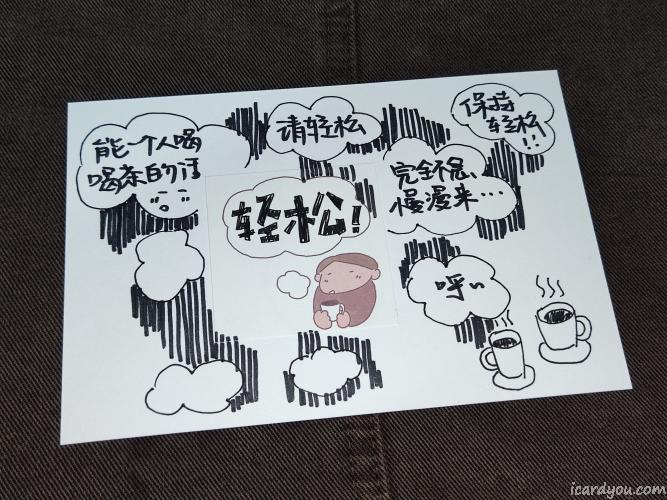 能一个人喝
喝茶的话
请轻松
保持
轻松!!
轻松!
完全不急、
慢慢来...
呼~
icardyou.com